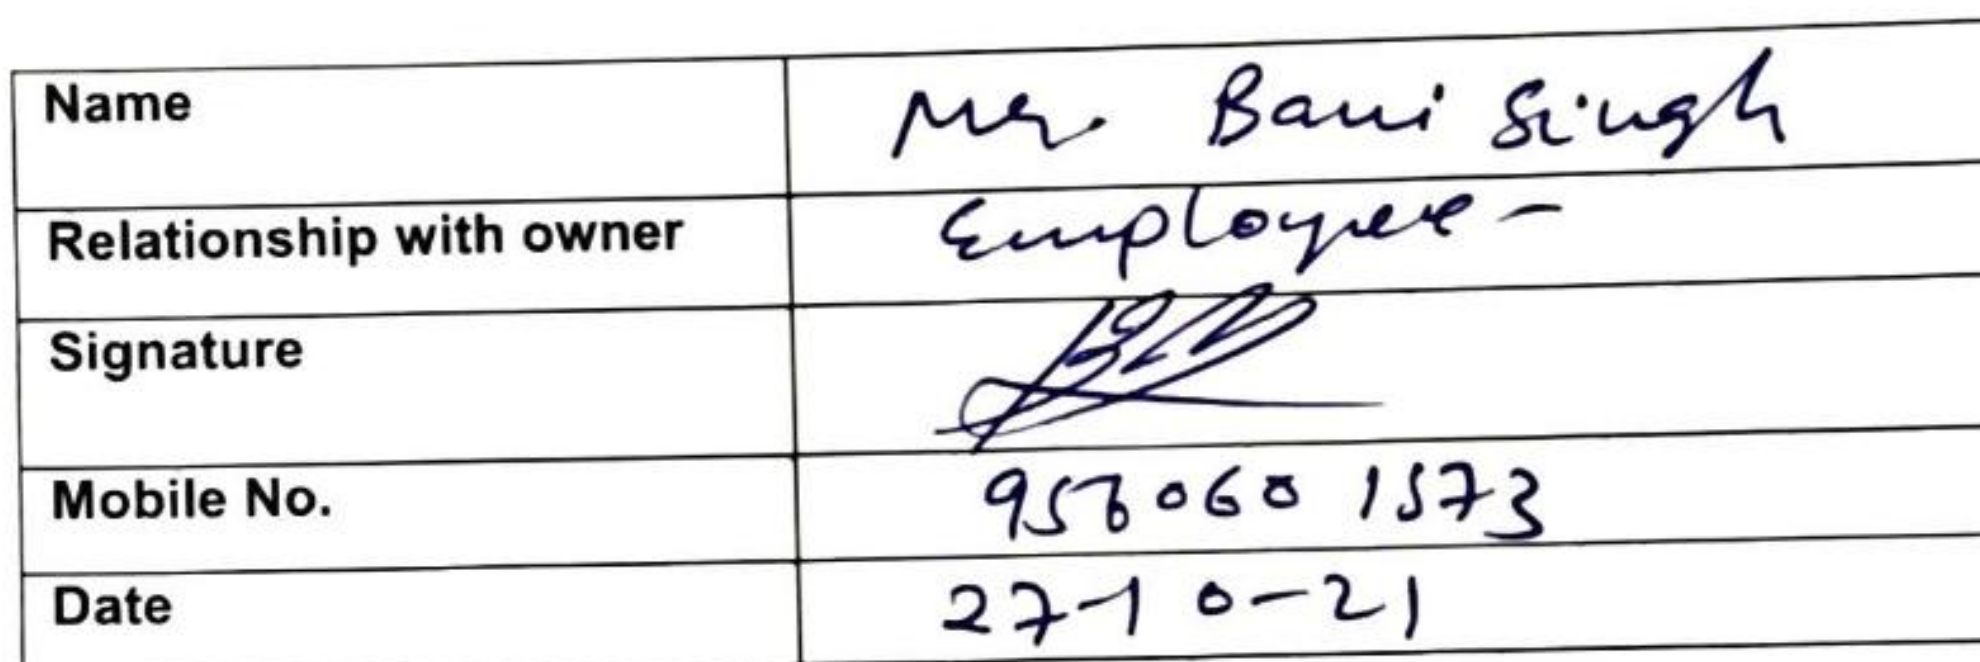 Name Mr. Bani Singh
Relationship with owner Employee -
Signature
Mobile No. 9560601573
Date 27-10-21